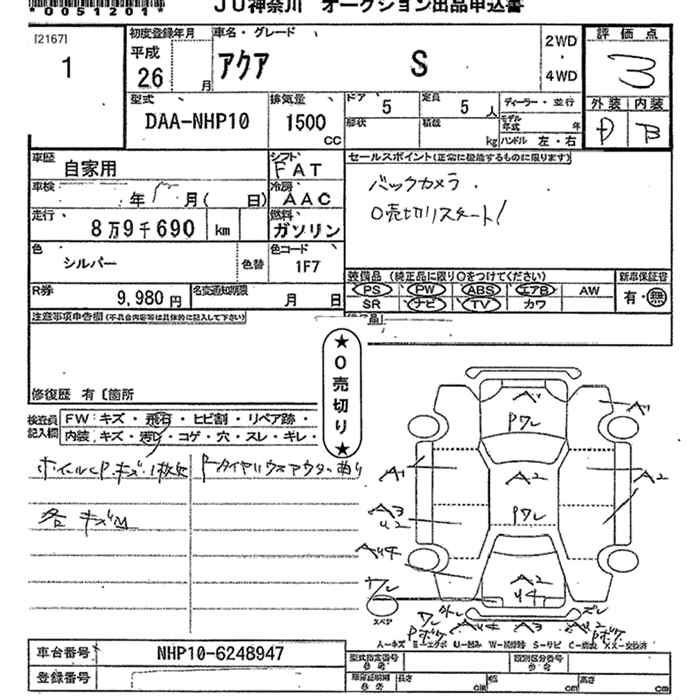 *0051201*
JU神奈川 オークション出品申込書
[2167]
1
初度登録年月
平成
26 月
車名・グレード
アクア S
2WD
・
4WD
評価点
3
外装 内装
D B
型式
DAA-NHP10
排気量
1500
cc
ドア 5
定員 5 人
形状
積載 kg
ディーラー・並行
モデル年式 年
ハンドル 左・右
車歴 自家用
シフト FAT
車検 年 月( 日)
冷房 AAC
走行 8万9千690 km
燃料 ガソリン
色 シルバー 色替
色コード 1F7
R券 9,980円
名変通知期限 月 日
セールスポイント(正常に機能するものに限ります)
バックカメラ.
0売切りスタート!
装備品 (純正品に限り○をつけてください)
新車保証書
PS PW ABS エアB AW
SR ナビ TV カワ
有・無
注意事項申告欄(不具合内容等は具体的に記入して下さい)
★0売切り★
修復歴 有〔箇所
検査員記入欄
FW:キズ・飛石・ヒビ割・リペア跡・
内装:キズ・汚レ・コゲ・穴・スレ・キレ・
ホイールCP.キズ.
各キズ
A1
A1
Pワレ
A1
A2
A2
A3
U2
Pワレ
AU4
A2
U4
ワレ
スペア
ワレ
AU4
A3
AU2
ズレ
A-キズ E-エクボ U-凹み W-補修跡 S-サビ C-腐食 XX-交換済
車台番号 NHP10-6248947
登録番号
型式指定番号
参考
類別区分番号
参考
車庫証明用
参考
長さ cm
幅 cm
高さ cm